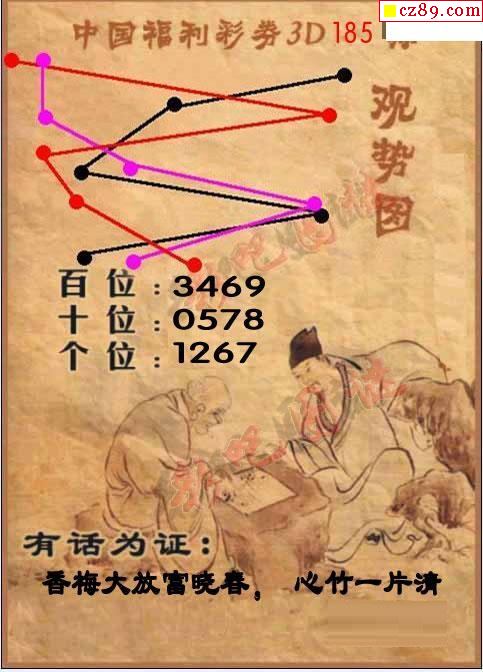 cz89.com
中国福利彩券3D 185
观势图
百位：3469
十位：0578
个位：1267
彩吧图社
彩吧图社
有话为证：
香梅大放富晓春， 心竹一片清